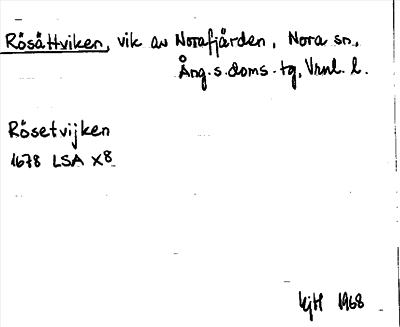 Rösättviken, vik av Norafjärden, Nora sn,
Ång. s. doms. tg, Vrnl. l.
Rösetvijken
1678 LSA X8
KjH 1968